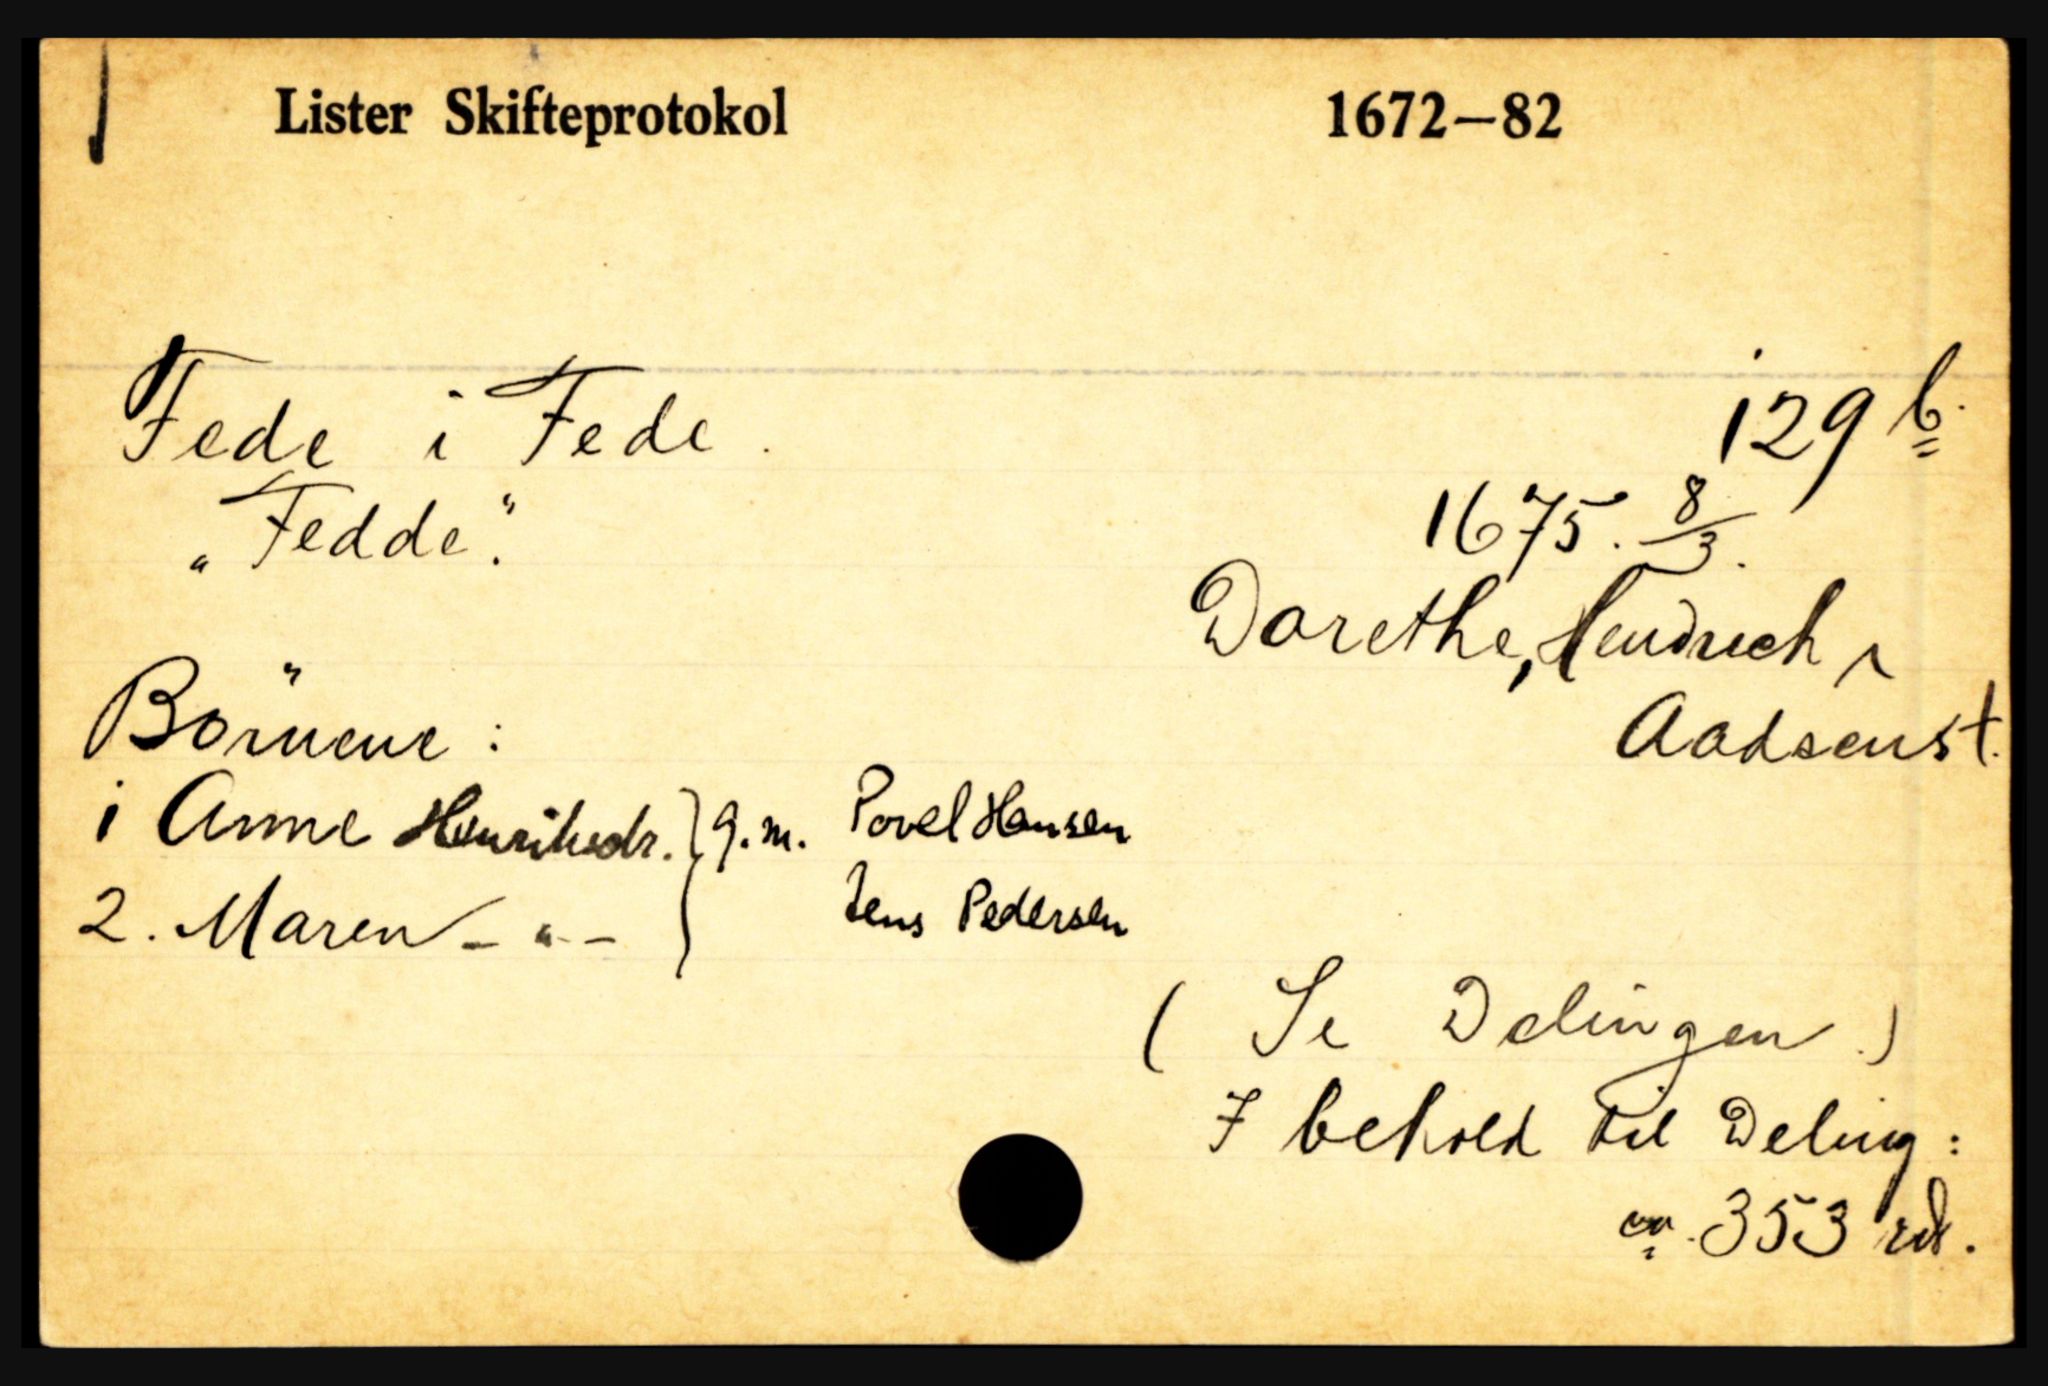 Lister Skifteprotokol 1672–82
Fede i Fede. 129 b.
„Fedde“. 1675. 8/3.
Dorethe, Hendrich
Aadsens †.
Börnene:
1 Anne Henriksdr. } g.m. Povel Hansen
2. Maren – „ – } Jens Pedersen
( Se Delingen.)
I behold til Deling:
ca. 353 rd.